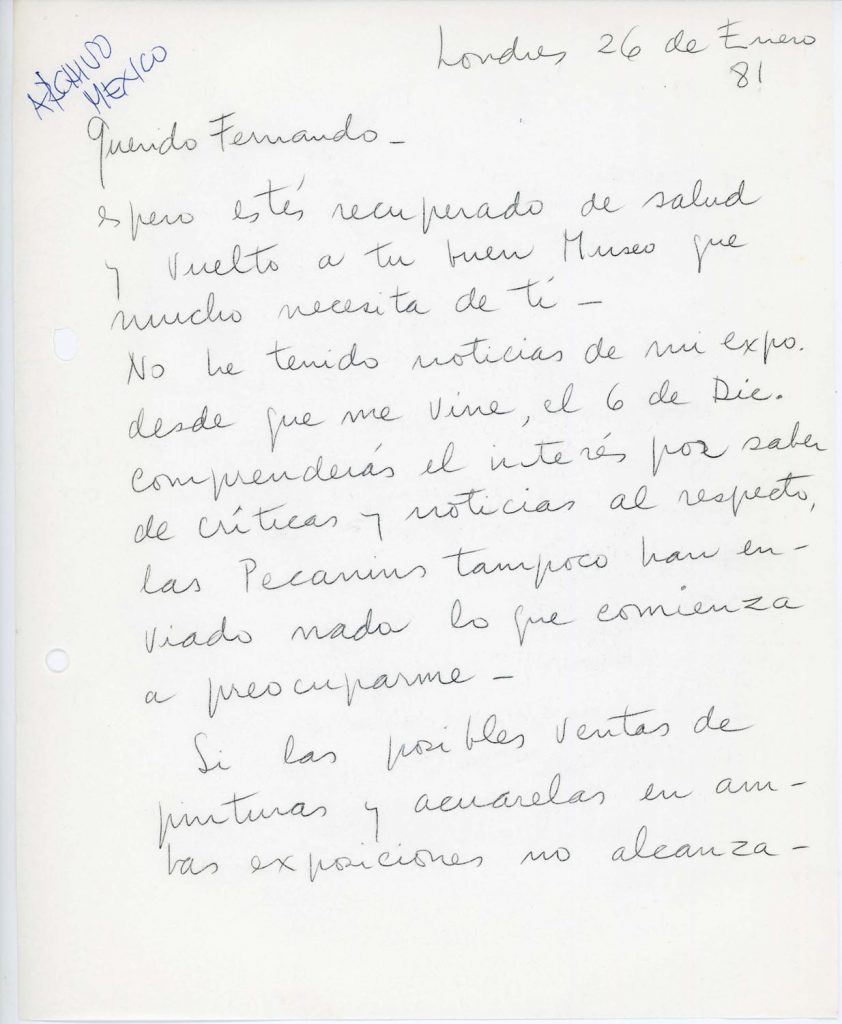 ARCHIVO
MEXICO
Londres 26 de Enero
81
Querido Fernando -
espero estés recuperado de salud
y vuelto a tu buen Museo que
mucho necesita de tí -
No he tenido noticias de mi expo.
desde que me vine, el 6 de Dic.
comprenderás el interés por saber
de críticas y noticias al respecto,
las Pecanins tampoco han en-
viado nada lo que comienza
a preocuparme -
Si las posibles ventas de
pinturas y acuarelas en am-
bas exposiciones no alcanza-